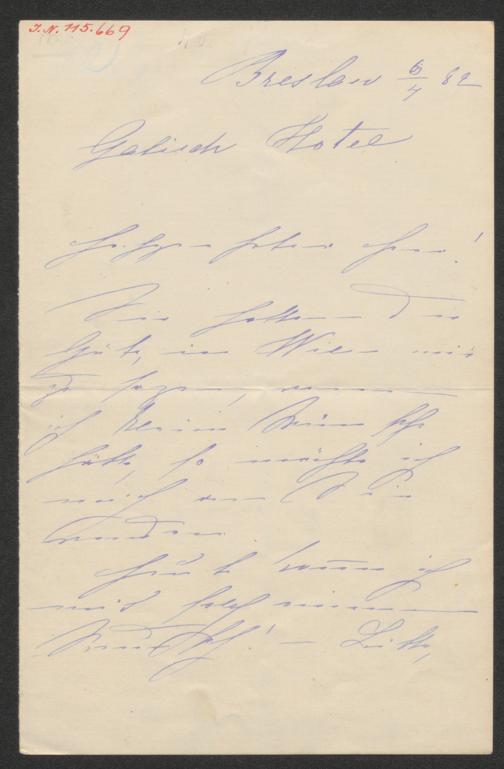 I.N. 115.669
Breslau 6/4 82
Galisch Hotel
Hochgeehrter Herr!
Sie hatten die
Güte, in Wien mir
zu sagen, wenn
ich Wünsche
hätte, so möchte ich
mich an Sie
wenden.
Heute komme ich
mit solch einem
Wunsch! – Bitte,